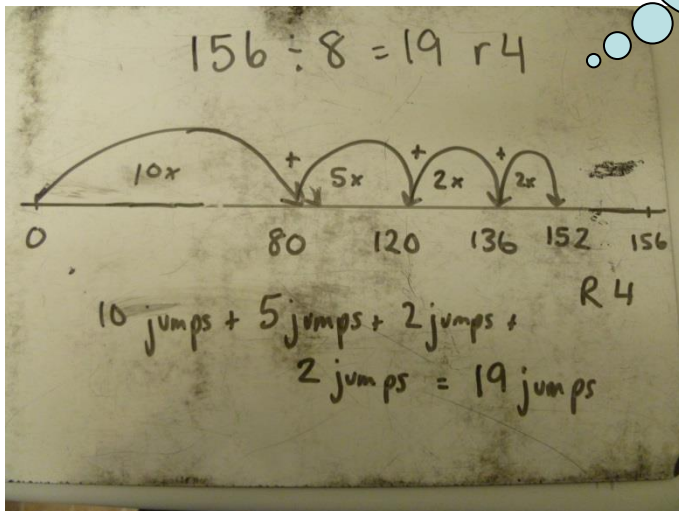 156 ÷ 8 = 19 r4
+ + +
10x 5x 2x 2x
0 80 120 136 152 156
R 4
10 jumps + 5 jumps + 2 jumps +
2 jumps = 19 jumps